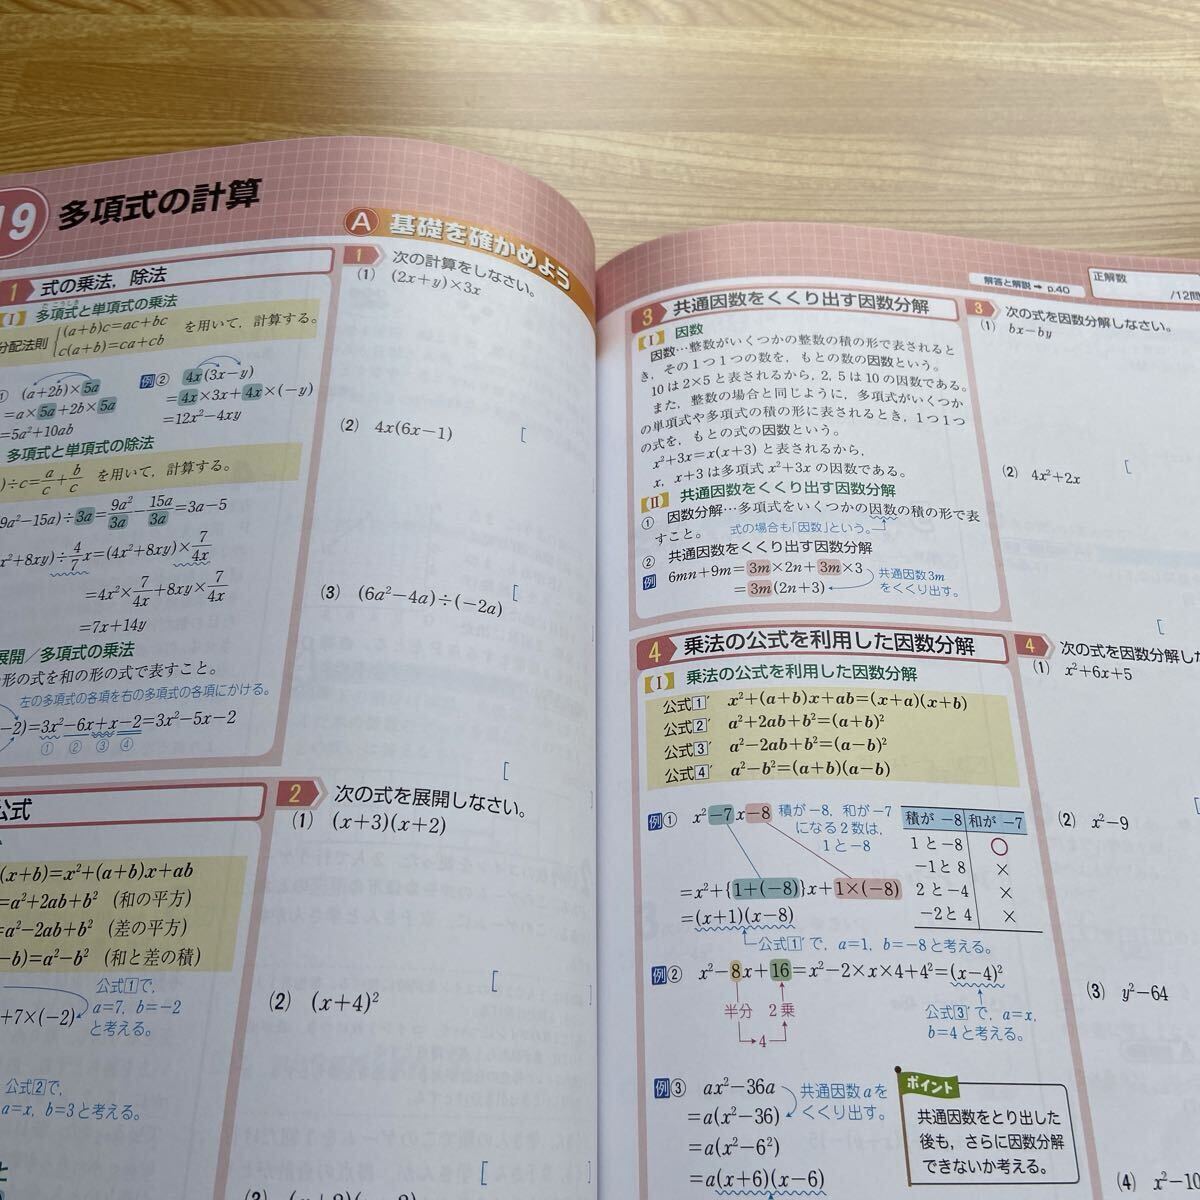 19 多項式の計算
1 式の乗法，除法
【I】 多項式と単項式の乗法
たこうしき
分配法則 (a+b)c=ac+bc
c(a+b)=ca+cb
を用いて，計算する。
① (a+2b)×5a
=a×5a+2b×5a
=5a²+10ab
例② 4x(3x−y)
=4x×3x+4x×(−y)
=12x²−4xy
多項式と単項式の除法
)÷c=a/c+b/c を用いて，計算する。
9a²−15a)÷3a=9a²/3a−15a/3a=3a−5
x²+8xy)÷4/7x=(4x²+8xy)×7/4x
=4x²×7/4x+8xy×7/4x
=7x+14y
展開／多項式の乗法
形の式を和の形の式で表すこと。
左の多項式の各項を右の多項式の各項にかける。
−2)=3x²−6x+x−2=3x²−5x−2
① ② ③ ④
公式
(x+b)=x²+(a+b)x+ab
=a²+2ab+b² (和の平方)
=a²−2ab+b² (差の平方)
−b)=a²−b² (和と差の積)
公式1で，
a=7，b=−2
と考える。
+7×(−2)
公式2で，
a=x，b=3と考える。
A 基礎を確かめよう
1 次の計算をしなさい。
(1) (2x+y)×3x
(2) 4x(6x−1)
(3) (6a²−4a)÷(−2a)
2 次の式を展開しなさい。
(1) (x+3)(x+2)
(2) (x+4)²
解答と解説➡p.40
正解数
/12問
3 共通因数をくくり出す因数分解
【I】 因数
因数…整数がいくつかの整数の積の形で表されると
き，その1つ1つの数を，もとの数の因数という。
10は2×5と表されるから，2，5は10の因数である。
また，整数の場合と同じように，多項式がいくつか
の単項式や多項式の積の形に表されるとき，1つ1つ
の式を，もとの式の因数という。
x²+3x=x(x+3)と表されるから，
x，x+3は多項式x²+3xの因数である。
【II】 共通因数をくくり出す因数分解
① 因数分解…多項式をいくつかの因数の積の形で表
すこと。 式の場合も「因数」という。
② 共通因数をくくり出す因数分解
例 6mn+9m=3m×2n+3m×3
=3m(2n+3)
共通因数3m
をくくり出す。
3 次の式を因数分解しなさい。
(1) bx−by
(2) 4x²+2x
4 乗法の公式を利用した因数分解
【I】 乗法の公式を利用した因数分解
公式1′ x²+(a+b)x+ab=(x+a)(x+b)
公式2′ a²+2ab+b²=(a+b)²
公式3′ a²−2ab+b²=(a−b)²
公式4′ a²−b²=(a+b)(a−b)
例① x²−7x−8
積が−8，和が−7
になる2数は，
1と−8
=x²+{1+(−8)}x+1×(−8)
=(x+1)(x−8)
公式1′で，a=1，b=−8と考える。
積が −8 和が −7
1と−8 ○
−1と8 ×
2と−4 ×
−2と4 ×
例② x²−8x+16=x²−2×x×4+4²=(x−4)²
半分 2乗
4
公式3′で，a=x，
b=4と考える。
例③ ax²−36a
=a(x²−36)
=a(x²−6²)
=a(x+6)(x−6)
共通因数aを
くくり出す。
ポイント
共通因数をとり出した
後も，さらに因数分解
できないか考える。
4 次の式を因数分解し
(1) x²+6x+5
(2) x²−9
(3) y²−64
(4) x²−10